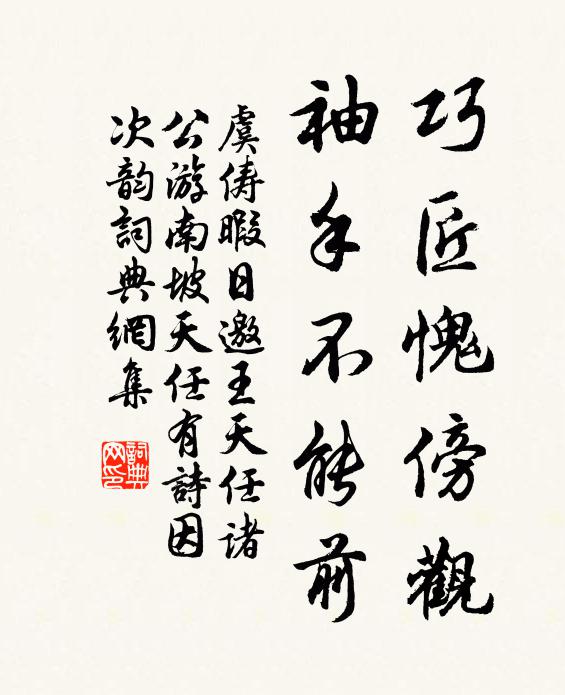 巧匠愧傍觀
袖手不能前
虞俦暇日邀王天任诸
公游南坡天任有詩因
次韵詞典網集
詞典網印